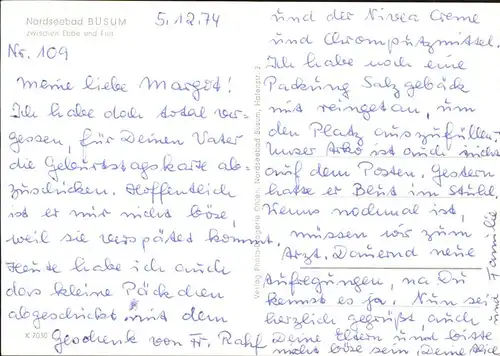 Nordseebad BÜSUM
zwischen Elbe und Eider
5.12.74
Nr. 109
Meine liebe Margot!
Ich habe doch total ver-
gessen, für Deinen Vater
die Geburtstagskarte ab-
zuschicken. Hoffentlich
ist er mir nicht böse,
weil sie verspätet kommt.
Heute habe ich auch
das kleine Päckchen
abgeschickt mit dem
Geschenk von Fr.
K 7030
Verlag Photo-Drogerie Nordseebad Büsum, Hafenstr. 2
und der Nivea Creme
und Chromputzmittel.
Ich habe noch eine
Packung Salzgebäck
mit reingetan, um
den Platz auszufüllen.
Unser Arko ist auch nicht
auf dem Posten. Gestern
hatte er Blut im Stuhl
Wenns nochmal ist,
müssen wir zum
Arzt. Dauernd neue
Aufregungen, na Du
kennst es ja. Nun sei
herzlich gegrüßt, auch
Deine Eltern und bitte
nicht böse sein, Deine
und Familie